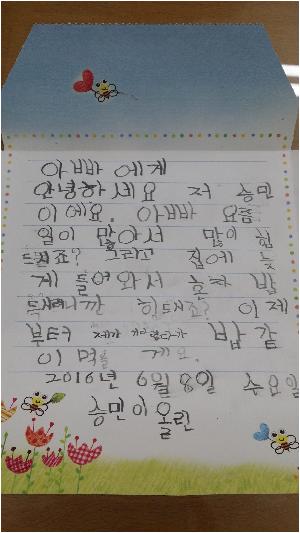 아빠 에게
안녕하세요 저 승민
이에요. 아빠 요즘
일이 많아서 많이 힘
드시죠? 그리고 집에 늦
게 들어와서 혼자 밥
드시려니까 힘드시죠? 이제
부터 제가 기다렸다가 밥 같
이 먹을 게요.
2016년 6월 8일 수요일
승민이 올린